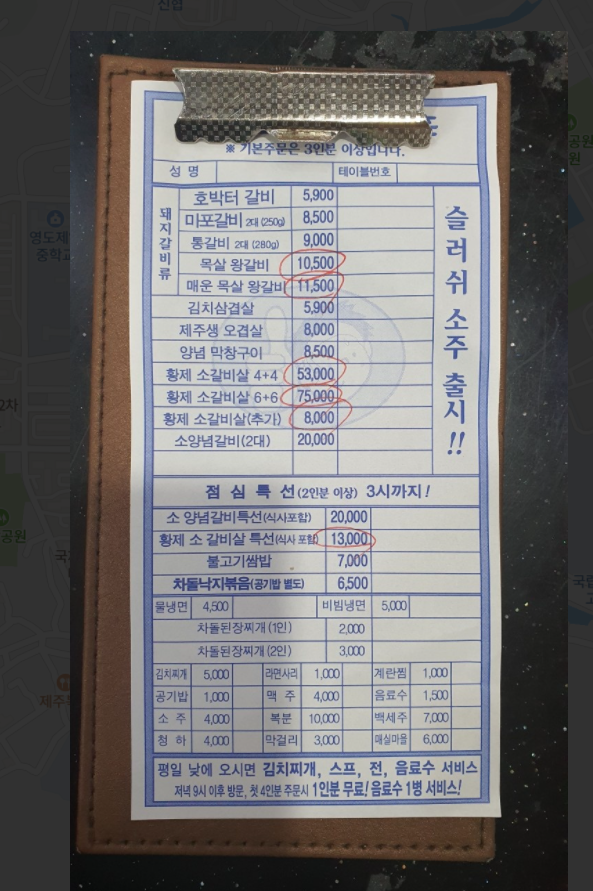 ※ 기본주문은 3인분 이상입니다.
성 명
테이블번호
돼지갈비류
호박터 갈비 5,900
미포갈비 2대 (250g) 8,500
통갈비 2대 (280g) 9,000
목살 왕갈비 10,500
매운 목살 왕갈비 11,500
김치삼겹살 5,900
제주생 오겹살 8,000
양념 막창구이 8,500
황제 소갈비살 4+4 53,000
황제 소갈비살 6+6 75,000
황제 소갈비살(추가) 8,000
소양념갈비(2대) 20,000
슬러쉬 소주 출시!!
점 심 특 선(2인분 이상) 3시까지!
소 양념갈비특선(식사포함) 20,000
황제 소 갈비살 특선(식사 포함) 13,000
불고기쌈밥 7,000
차돌낙지볶음(공기밥 별도) 6,500
물냉면 4,500 비빔냉면 5,000
차돌된장찌개 (1인) 2,000
차돌된장찌개 (2인) 3,000
김치찌개 5,000 라면사리 1,000 계란찜 1,000
공기밥 1,000 맥 주 4,000 음료수 1,500
소 주 4,000 복분 10,000 백세주 7,000
청 하 4,000 막걸리 3,000 매실마을 6,000
평일 낮에 오시면 김치찌개, 스프, 전, 음료수 서비스
저녁 9시 이후 방문, 첫 4인분 주문시 1인분 무료! 음료수 1병 서비스!
신협
영도제
중학교
2차
공원
제주
공원
원